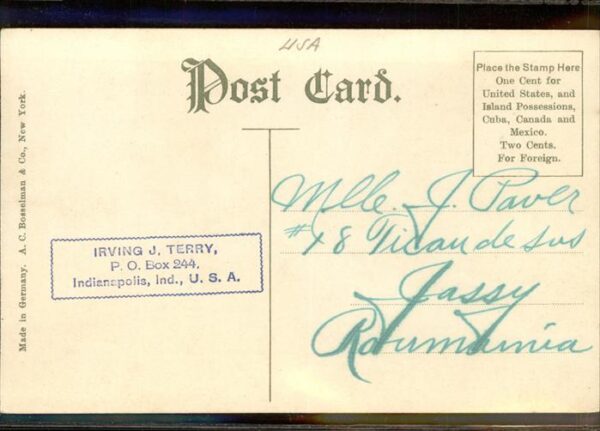 USA
Post Card.
Place the Stamp Here
One Cent for
United States, and
Island Possessions,
Cuba, Canada and
Mexico.
Two Cents.
For Foreign.
Made in Germany. A. C. Bosselman & Co., New York.
IRVING J. TERRY,
P. O. Box 244,
Indianapolis, Ind., U. S. A.
Mlle. J. Paver
Ticau de sus
Jassy
Roumainia